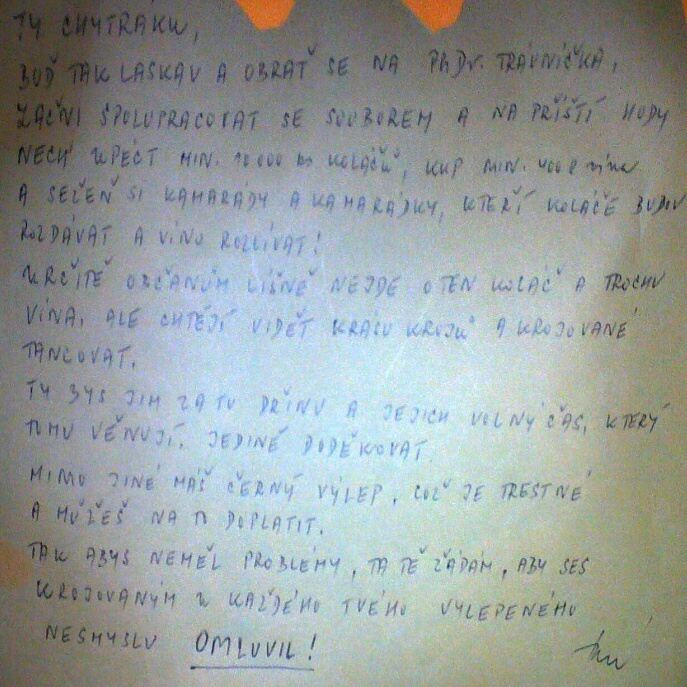 TY CHYTRÁKU,
BUĎ TAK LASKAV A OBRAŤ SE NA PhDr. TRÁVNÍČKA,
ZAČNI SPOLUPRACOVAT SE SOUBOREM A NA PŘÍŠTÍ HODY
NECH UPÉCT MIN. 10 000 ks KOLÁČŮ, KUP MIN. 400 l vína
A SEŽEŇ SI KAMARÁDY A KAMARÁDKY, KTEŘÍ KOLÁČE BUDOU
ROZDÁVAT A VÍNO ROZLÍVAT!
URČITĚ OBČANŮM LÍŠNĚ NEJDE O TEN KOLÁČ A TROCHU
VÍNA, ALE CHTĚJÍ VIDĚT KRÁSU KROJŮ A KROJOVANÉ
TANCOVAT.
TY BYS JIM ZA TU DŘINU A JEJICH VOLNÝ ČAS, KTERÝ
TOMU VĚNUJÍ, JEDINĚ DODĚKOVAT.
MIMO JINÉ MÁŠ ČERNÝ VÝLEP, COŽ JE TRESTNÉ
A MŮŽEŠ NA TO DOPLATIT.
TAK ABYS NEMĚL PROBLÉMY, TA TĚ ŽÁDÁM, ABY SES
KROJOVANÝM U KAŽDÉHO TVÉHO VYLEPENÉHO
NESMYSLU OMLUVIL!